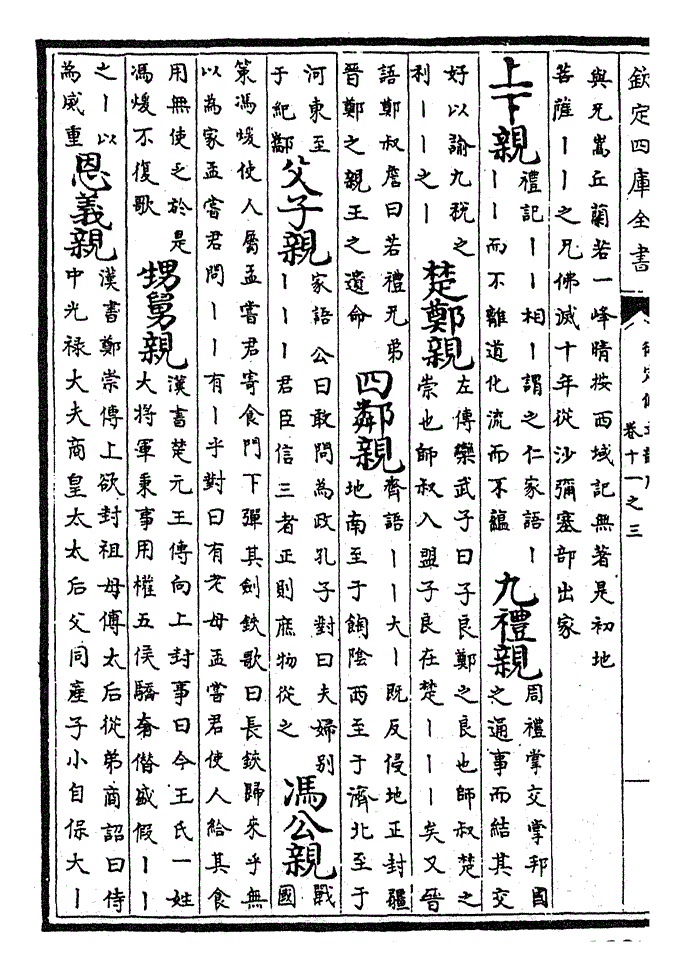 欽定四庫全書
御定佩文韻府
卷十一之三
與兄嵩丘蘭若一峰晴按西域記無著是初地
菩薩丨丨之兄佛滅十年從沙彌塞部出家
上下親
禮記丨丨相丨謂之仁家語丨
丨丨而不離道化流而不蘊
九禮親
周禮掌交掌邦國
之通事而結其交
好以諭九稅之
利丨丨之丨
楚鄭親
左傳欒武子曰子良鄭之良也師叔楚之
崇也師叔入盟子良在楚丨丨丨矣又晉
語鄭叔詹曰若禮兄弟
晉鄭之親王之遺命
四鄰親
齊語丨丨大丨既反侵地正封疆
地南至于餇陰西至于濟北至于
河東至
于紀酅
父子親
家語公曰敢問為政孔子對曰夫婦别
丨丨丨君臣信三者正則庶物從之
馮公親
戰
國
策馮煖使人屬孟嘗君寄食門下彈其劍鋏歌曰長鋏歸來乎無
以為家孟嘗君問丨丨有丨乎對曰有老母孟嘗君使人給其食
用無使乏於是
馮煖不復歌
甥舅親
漢書楚元王傳向上封事曰今王氏一姓
大將軍秉事用權五侯驕奢僭盛假丨丨
之丨以
為威重
恩義親
漢書鄭崇傳上欲封祖母傅太后從弟商詔曰侍
中光禄大夫商皇太太后父同產子小自保大丨